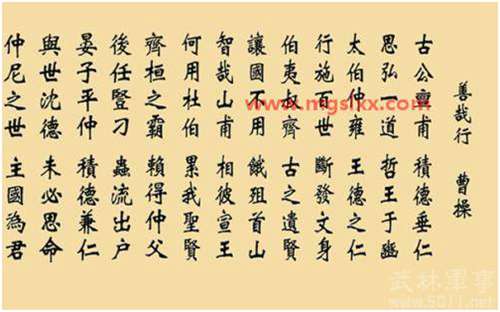 善哉行 曹操
古公亶甫 積德垂仁
思弘一道 哲王于豳
太伯仲雍 王德之仁
行施百世 斷發文身
伯夷叔齊 古之遺賢
讓國不用 餓殂首山
智哉山甫 相彼宣王
何用杜伯 累我聖賢
齊桓之霸 賴得仲父
後任豎刁 蟲流出户
晏子平仲 積德兼仁
與世沈德 未必思命
仲尼之世 主國為君
www.mgslxx.com
武林軍事
www.5011.net